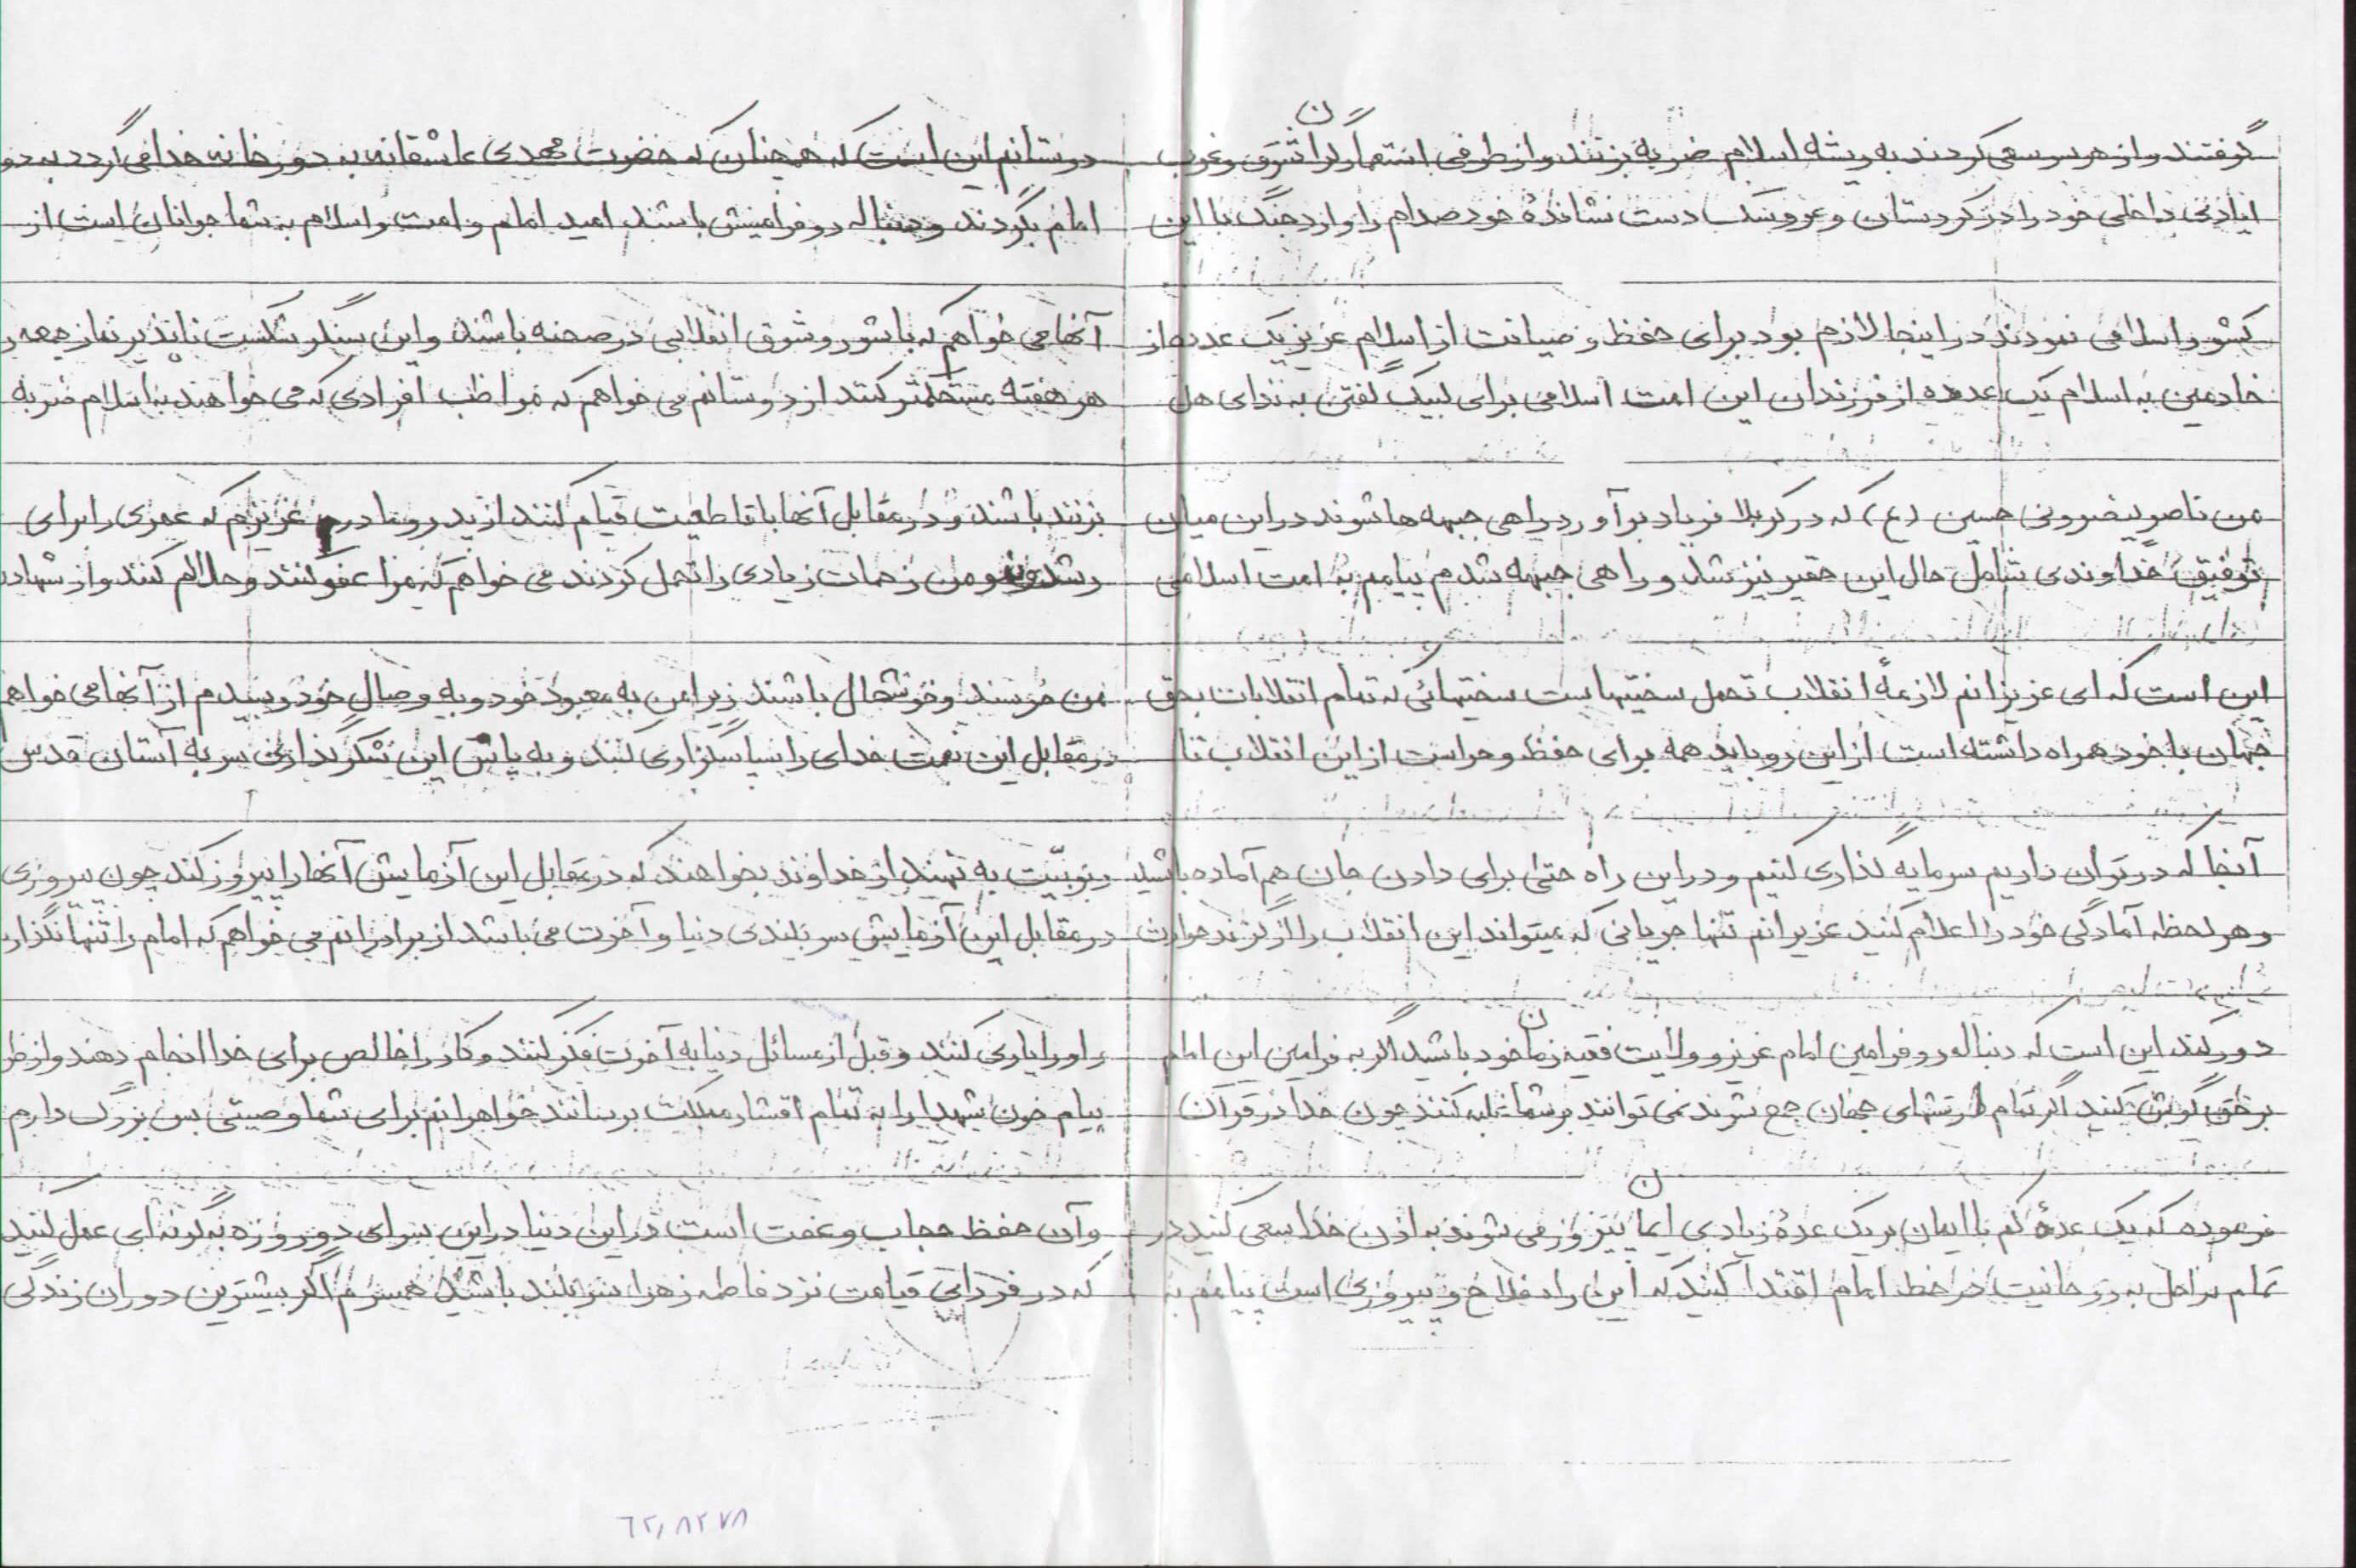 گرفتند و از هر سو سعی کردند به ریشه اسلام ضربه بزنند و از طرفی استعمارگران شرق و غرب
ایادی داخلی خود را در کردستان و عروسک دست نشاندهٔ خود صدام را وارد جنگ با این
کشور اسلامی نمودند در اینجا لازم بود برای حفظ و صیانت از اسلام عزیز یک عده از
خادمین به اسلام یک عده از فرزندان این امت اسلامی برای لبیک گفتن به ندای هل
من ناصر ینصرونی حسین (ع) که در کربلا فریاد برآورد راهی جبهه ها شوند در این میان
توفیق خداوندی شامل حال این حقیر نیز شد و راهی جبهه شدم پیامم به امت اسلامی
این است که ای عزیزانم لازمهٔ انقلاب تحمل سختیهاست سختیهائی که تمام انقلابات بحق
جهان با خود همراه داشته است از این رو باید همه برای حفظ و حراست از این انقلاب تا
آنجا که در توان داریم سرمایه گذاری کنیم و در این راه حتی برای دادن جان هم آماده باشید
و هر لحظه آمادگی خود را اعلام کنید عزیرانم تنها جریانی که میتواند این انقلاب را از گزند حوادث
دور کند این است که دنباله رو فرامین امام عزیز و ولایت فقیه زمان خود باشید اگر به فرامین این امام
بر حق گوش کنید اگر تمام ارتشهای جهان جمع شوند نمی توانند بر شما غلبه کنند چون خدا در قرآن
فرموده که یک عدهٔ کم با ایمان بر یک عدهٔ زیاد بی ایمان پیروز می شوند به اذن خدا سعی کنید در
تمام مراحل به روحانیت در خط امام اقتدا کنید که این راه فلاح و پیروزی است پیامم به
دوستانم این است که همچنان که حضرت مهدی عاشقانه به دور خانه خدا می گردد به دو
امام بگردند و دنباله رو فرامینش باشند امید امام و امت و اسلام به شما جوانان است از
آنها می خواهم که با شور و شوق انقلابی در صحنه باشند و این سنگر شکست ناپذیر نماز جمعه را
هر هفته مستحکمتر کنند از دوستانم می خواهم که مواظب افرادی که می خواهند به اسلام ضربه
بزنند باشند و در مقابل آنها با قاطعیت قیام کنند از پدر و مادرم عزیزم که عمری را برای
رشد و نمو من زحمات زیادی را تحمل کردند می خواهم که مرا عفو کنند و حلالم کنند و از شهادت
من خرسند و خوشحال باشند زیرا من به معبود خود و به وصال خود رسیدم از آنها می خواهم
در مقابل این نعمت خدای را سپاسگزاری کنند و به پاس این شکرگذاری سر به آستان قدس
ربوبیّت به نهند از خداوند بخواهند که در مقابل این آزمایش آنها را پیروز کند چون پیروزی
در مقابل این آزمایش سربلندی دنیا و آخرت می باشد از برادرانم می خواهم که امام را تنها نگذارند
و او را یاری کنند و قبل از مسائل دنیا به آخرت فکر کنند و کار را خالص برای خدا انجام دهند و از طر
پیام خون شهدا را به تمام اقشار مملکت برسانند خواهرانم برای شما وصیتی بس بزرگ دارم
و آن حفظ حجاب و عفت است در این دنیا در این سرای دو روزه به گونه ای عمل کنید
که در فردای قیامت نزد فاطمه زهرا سربلند باشید همسرم اگر بیشترین دوران زندگی